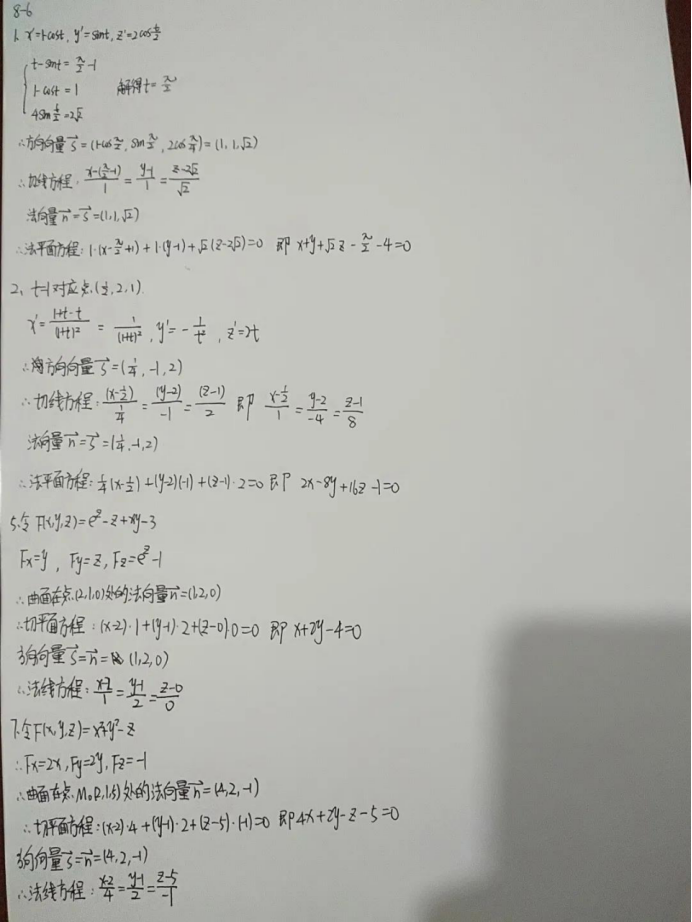 8-6
1. x'=1-cost, y'=sint, z'=2cos t/2
{ t-sint = π/2 -1
1-cost = 1 解得t= π/2
4sin t/2 =2√2
∴方向向量 s⃗ = (1-cos π/2, sin π/2, 2cos π/4) = (1, 1, √2)
∴切线方程: (x-(π/2-1))/1 = (y-1)/1 = (z-2√2)/√2
法向量 n⃗ = s⃗ = (1,1,√2)
∴法平面方程: 1·(x-π/2+1) + 1·(y-1) + √2(z-2√2)=0 即 x+y+√2z - π/2 -4=0
2, t=1对应点(1/2, 2, 1).
x' = (1+t-t)/(1+t)² = 1/(1+t)², y' = - 1/t², z'=2t
∴方向向量 s⃗ = (1/4, -1, 2)
∴切线方程: (x-1/2)/(1/4) = (y-2)/-1 = (z-1)/2 即 (x-1/2)/1 = (y-2)/-4 = (z-1)/8
法向量 n⃗ = s⃗ = (1/4, -1, 2)
∴法平面方程: 1/4(x-1/2) + (y-2)(-1) + (z-1)·2=0 即 2x-8y+16z-1=0
5.令F(x,y,z)=e^z-z+xy-3
Fx=y, Fy=z, Fz=e^z-1
∴曲面在点(2,1,0)处的法向量 n⃗=(1,2,0)
∴切平面方程: (x-2)·1+(y-1)·2+(z-0)·0=0 即 x+2y-4=0
方向向量 s⃗ = n⃗ = (1,2,0)
∴法线方程: (x-2)/1 = (y-1)/2 = (z-0)/0
7.令F(x,y,z)=x²+y²-z
∴Fx=2x, Fy=2y, Fz=-1
∴曲面在点M₀(2,1,5)处的法向量 n⃗=(4,2,-1)
∴切平面方程: (x-2)·4+(y-1)·2+(z-5)·(-1)=0 即 4x+2y-z-5=0
方向向量 s⃗ = n⃗ = (4,2,-1)
∴法线方程: (x-2)/4 = (y-1)/2 = (z-5)/-1